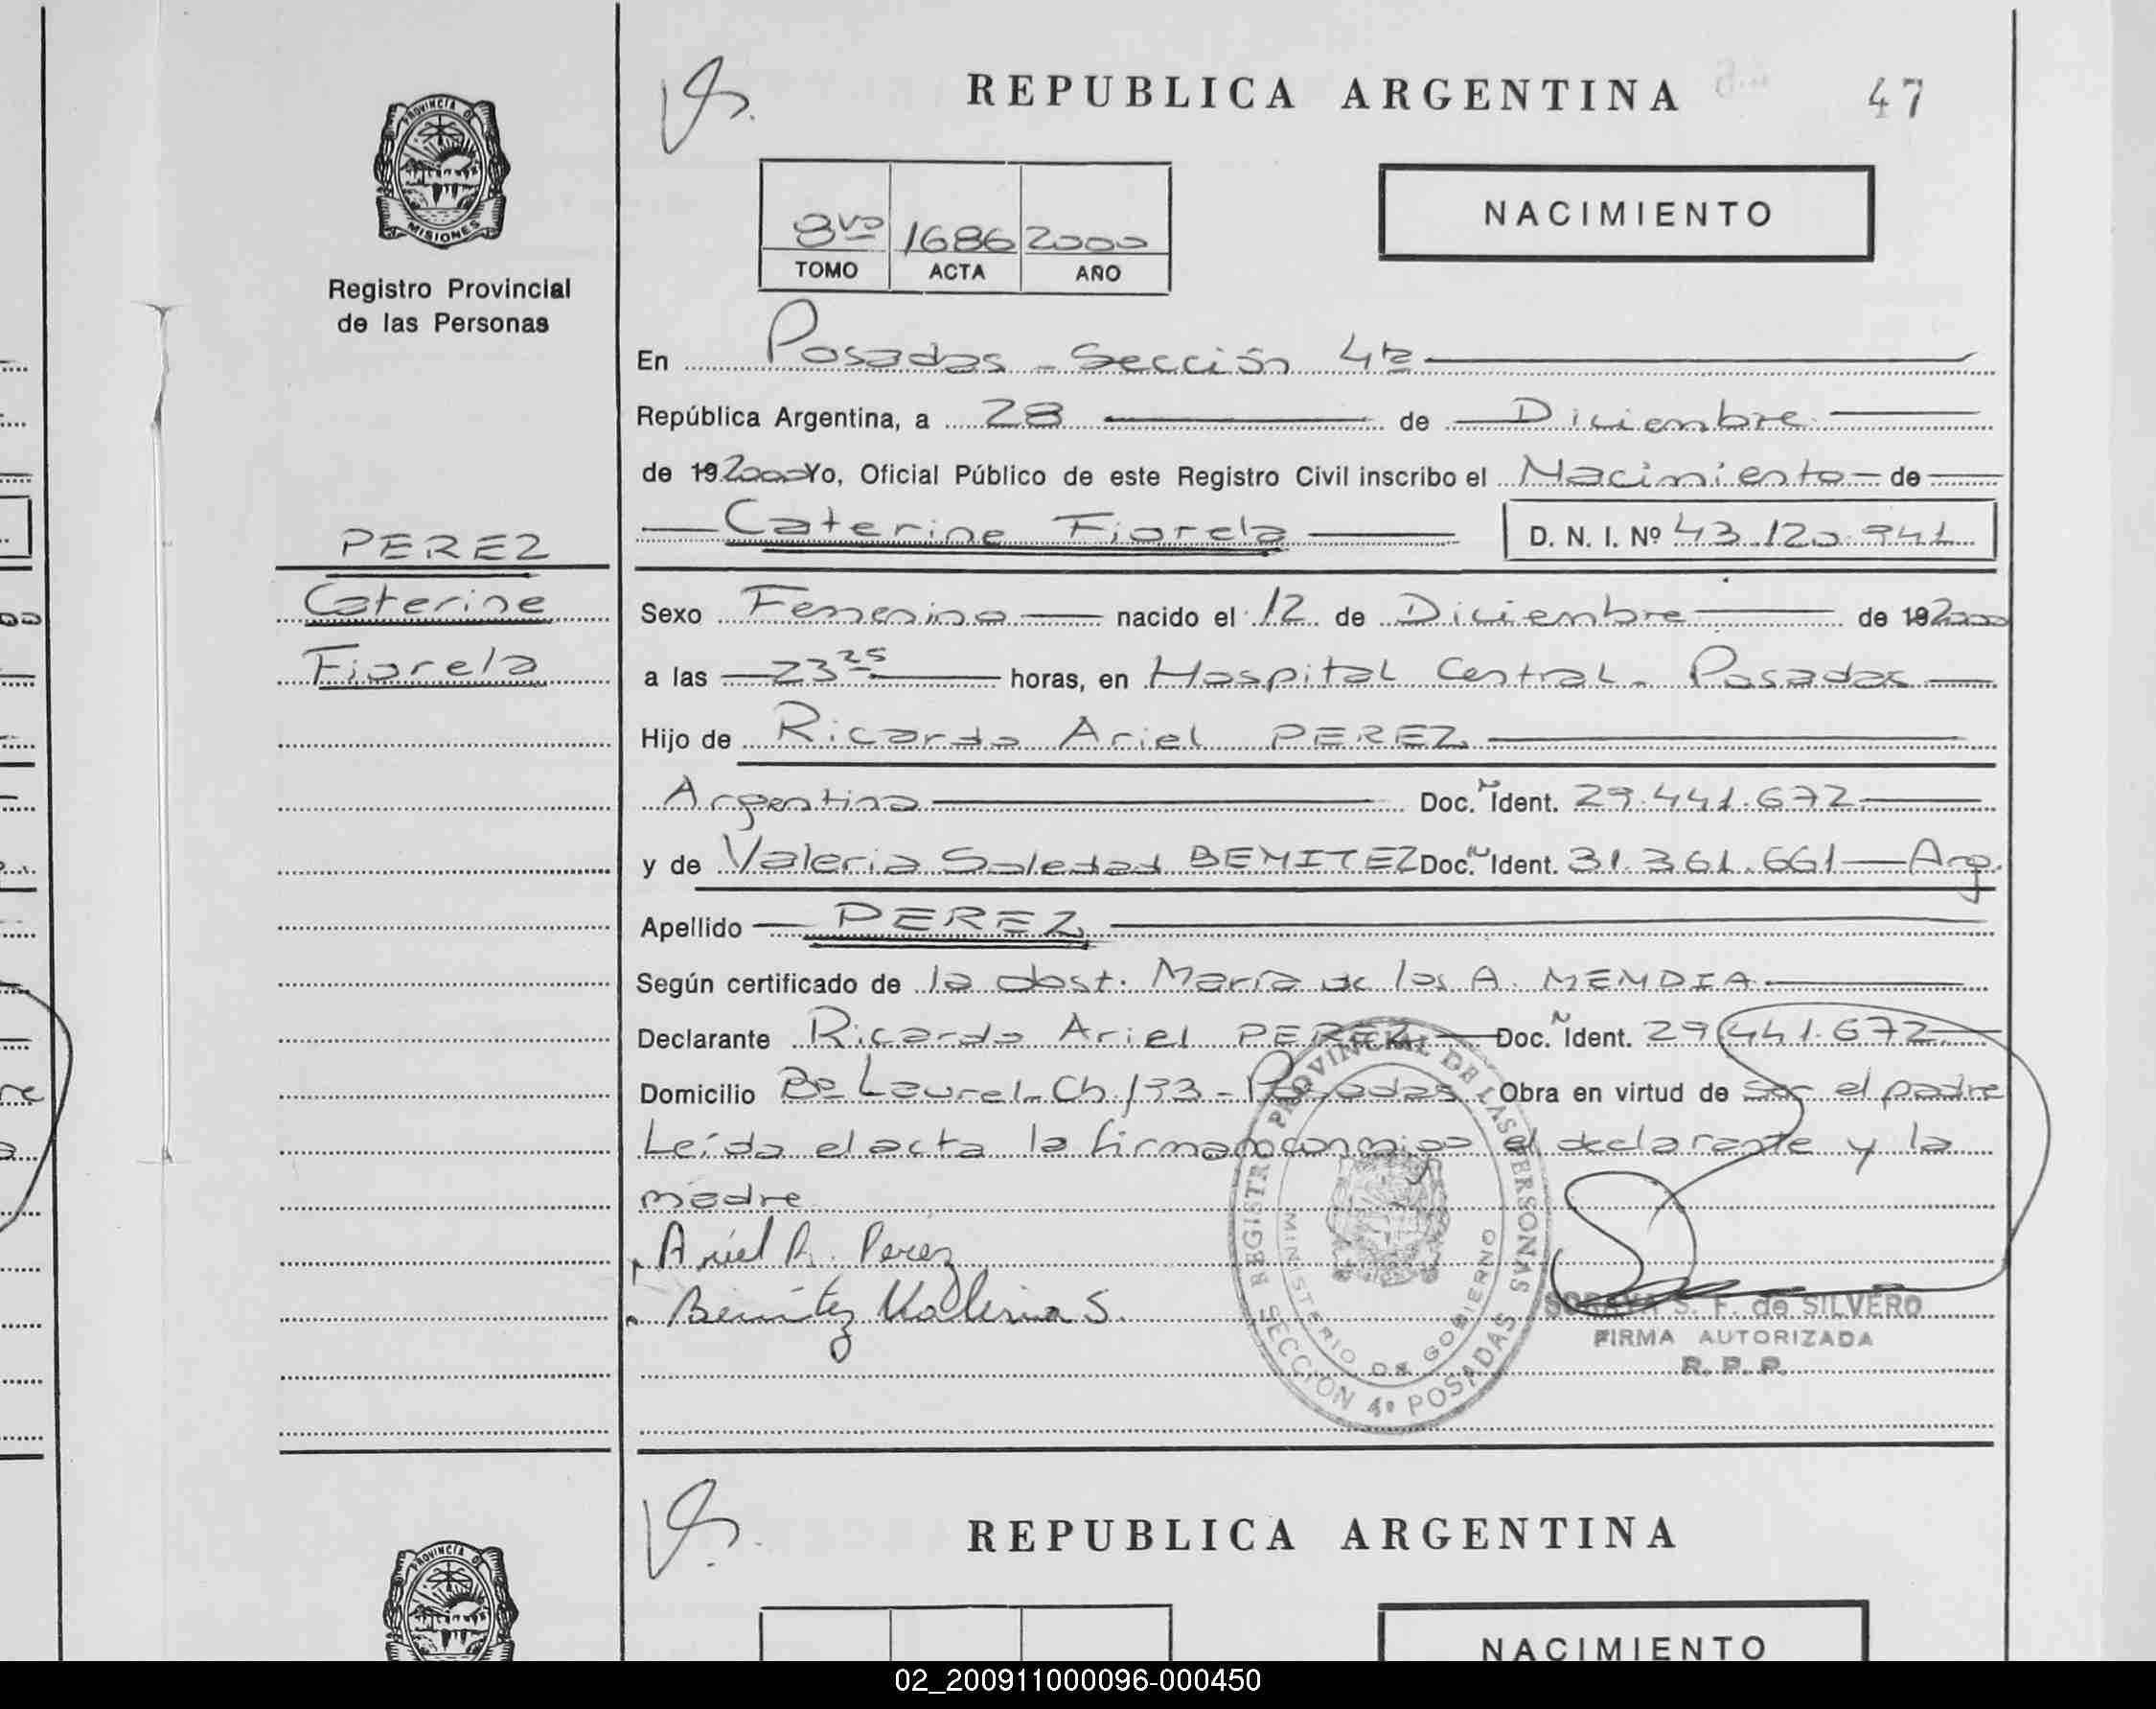 REPUBLICA ARGENTINA
47
PROVINCIA DE
MISIONES
Registro Provincial
de las Personas
NACIMIENTO
8vo 1686 2000
TOMO ACTA AÑO
En Posadas - Sección 4ta
República Argentina, a 28 de Diciembre
de 19 2000 Yo, Oficial Público de este Registro Civil inscribo el Nacimiento de
Caterine Fiorela D. N. I. Nº 43.120.941
PEREZ
Caterine
Fiorela
Sexo Femenino nacido el 12 de Diciembre de 19 2000
a las 23 25 horas, en Hospital Central - Posadas
Hijo de Ricardo Ariel PEREZ
Argentina Doc. Ident. 29.441.672
y de Valeria Soledad BENITEZ Doc. Ident. 31.361.661 Arg.
Apellido PEREZ
Según certificado de la obst. María de los A. MENDIA
Declarante Ricardo Ariel PEREZ Doc. Ident. 29.441.672
Domicilio Bº Laurel - Ch. 133 - Posadas Obra en virtud de ser el padre
Leída el acta la firman conmigo el declarante y la
madre
Ariel R. Perez
Benítez Valeria S.
REGISTRO PROVINCIAL DE LAS PERSONAS
MINISTERIO DE GOBIERNO
SECCION 4º POSADAS
SORAYA S. F. de SILVERO
FIRMA AUTORIZADA
R. P. P.
REPUBLICA ARGENTINA
PROVINCIA DE
NACIMIENTO
02_200911000096-000450